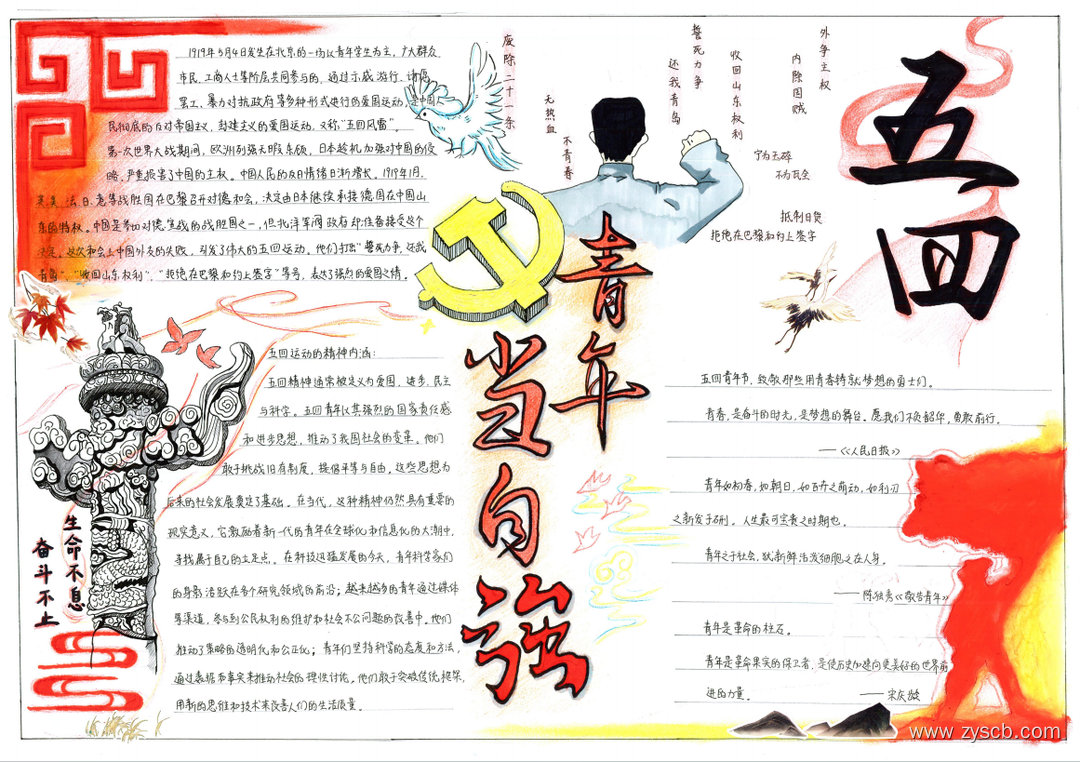 1919年5月4日发生在北京的一场以青年学生为主，广大群众
市民、工商人士等阶层共同参与的，通过示威游行、请愿
罢工、暴力对抗政府等多种形式进行的爱国运动，是中国人
民彻底的反对帝国主义，封建主义的爱国运动，又称“五四风雷”。
第一次世界大战期间，欧洲列强无暇东顾，日本趁机加强对中国的侵
略，严重损害了中国的主权。中国人民的反日情绪日渐增长。1919年1月，
英、美、法、日、意等战胜国在巴黎召开对德和会，决定由日本继续承接德国在中国山
东的特权。中国是参加对德宣战的战胜国之一，但北洋军阀政府却准备接受这个
决定。这次和会上中国外交的失败，引发了伟大的五四运动。他们打出“誓死力争，还我
青岛”，“收回山东权利”，“拒绝在巴黎和约上签字”等号，表达了强烈的爱国之情。
废除二十一条
无热血
不青春
还我青岛
誓死力争
收回山东权利
内除国贼
外争主权
宁为玉碎
不为瓦全
抵制日货
拒绝在巴黎和约上签字
五四
青年当自强
五四运动的精神内涵：
五四精神通常被定义为爱国、进步、民主
与科学。五四青年以其强烈的国家责任感
和进步思想，推动了我国社会的变革。他们
敢于挑战旧有制度，提倡平等与自由。这些思想为
后来的社会发展奠定了基础。在当代，这种精神仍然具有重要的
现实意义，它激励着新一代的青年在全球化和信息化的大潮中，
寻找属于自己的立足点。在科技迅猛发展的今天，青年科学家们
的身影活跃在各个研究领域的前沿；越来越多的青年通过媒体
等渠道，参与到公民权利的维护和社会不公问题的改善中。他们
推动了策略的透明化和公正化；青年们坚持科学的态度和方法，
通过数据和事实来推动社会的理性讨论。他们敢于突破传统框架，
用新的思维和技术来改善人们的生活质量。
生命不息
奋斗不止
五四青年节，致敬那些用青春铸就梦想的勇士们。
青春，是奋斗的时光，是梦想的舞台。愿我们不负韶年，勇敢前行。
——《人民日报》
青年如初春，如朝日，如百卉之萌动，如利刃
之新发于硎，人生最可宝贵之时期也。
青年之于社会，犹新鲜活泼细胞之在人身。
——陈独秀《敬告青年》
青年是革命的柱石。
青年是革命果实的保卫者，是使历史加速向更美好的世界前
进的力量。 ——宋庆龄
www.zyscb.com